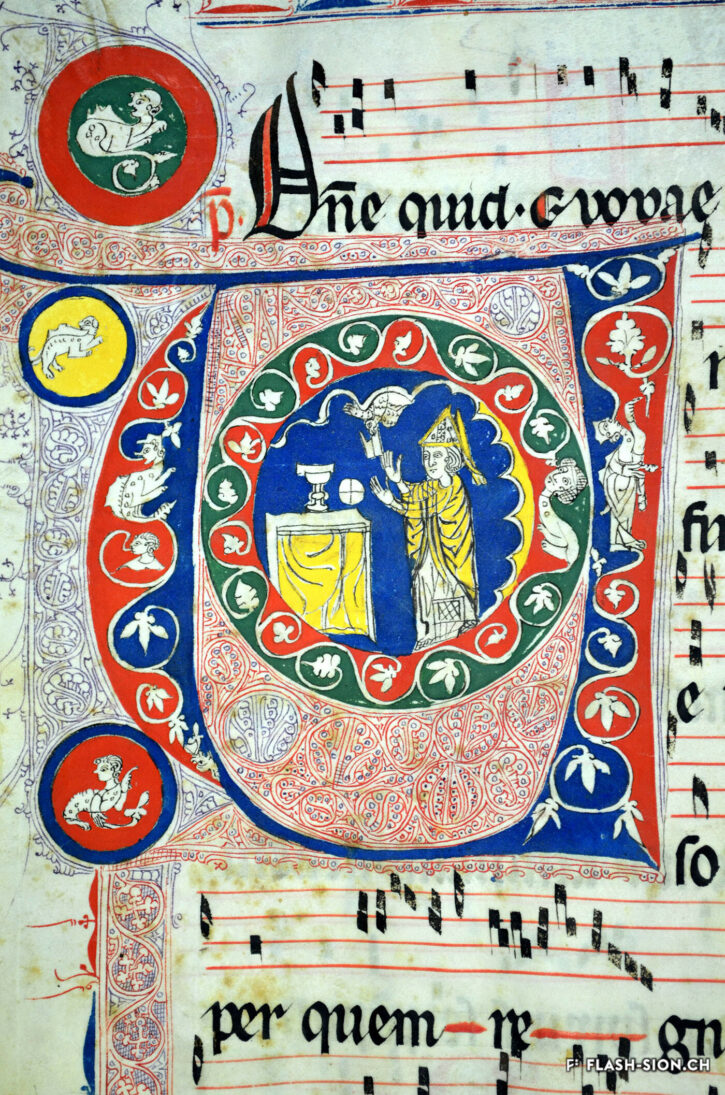 p̄. Dn̄e quid · evovae
so
per quem re gn
FLASH-SION.CH